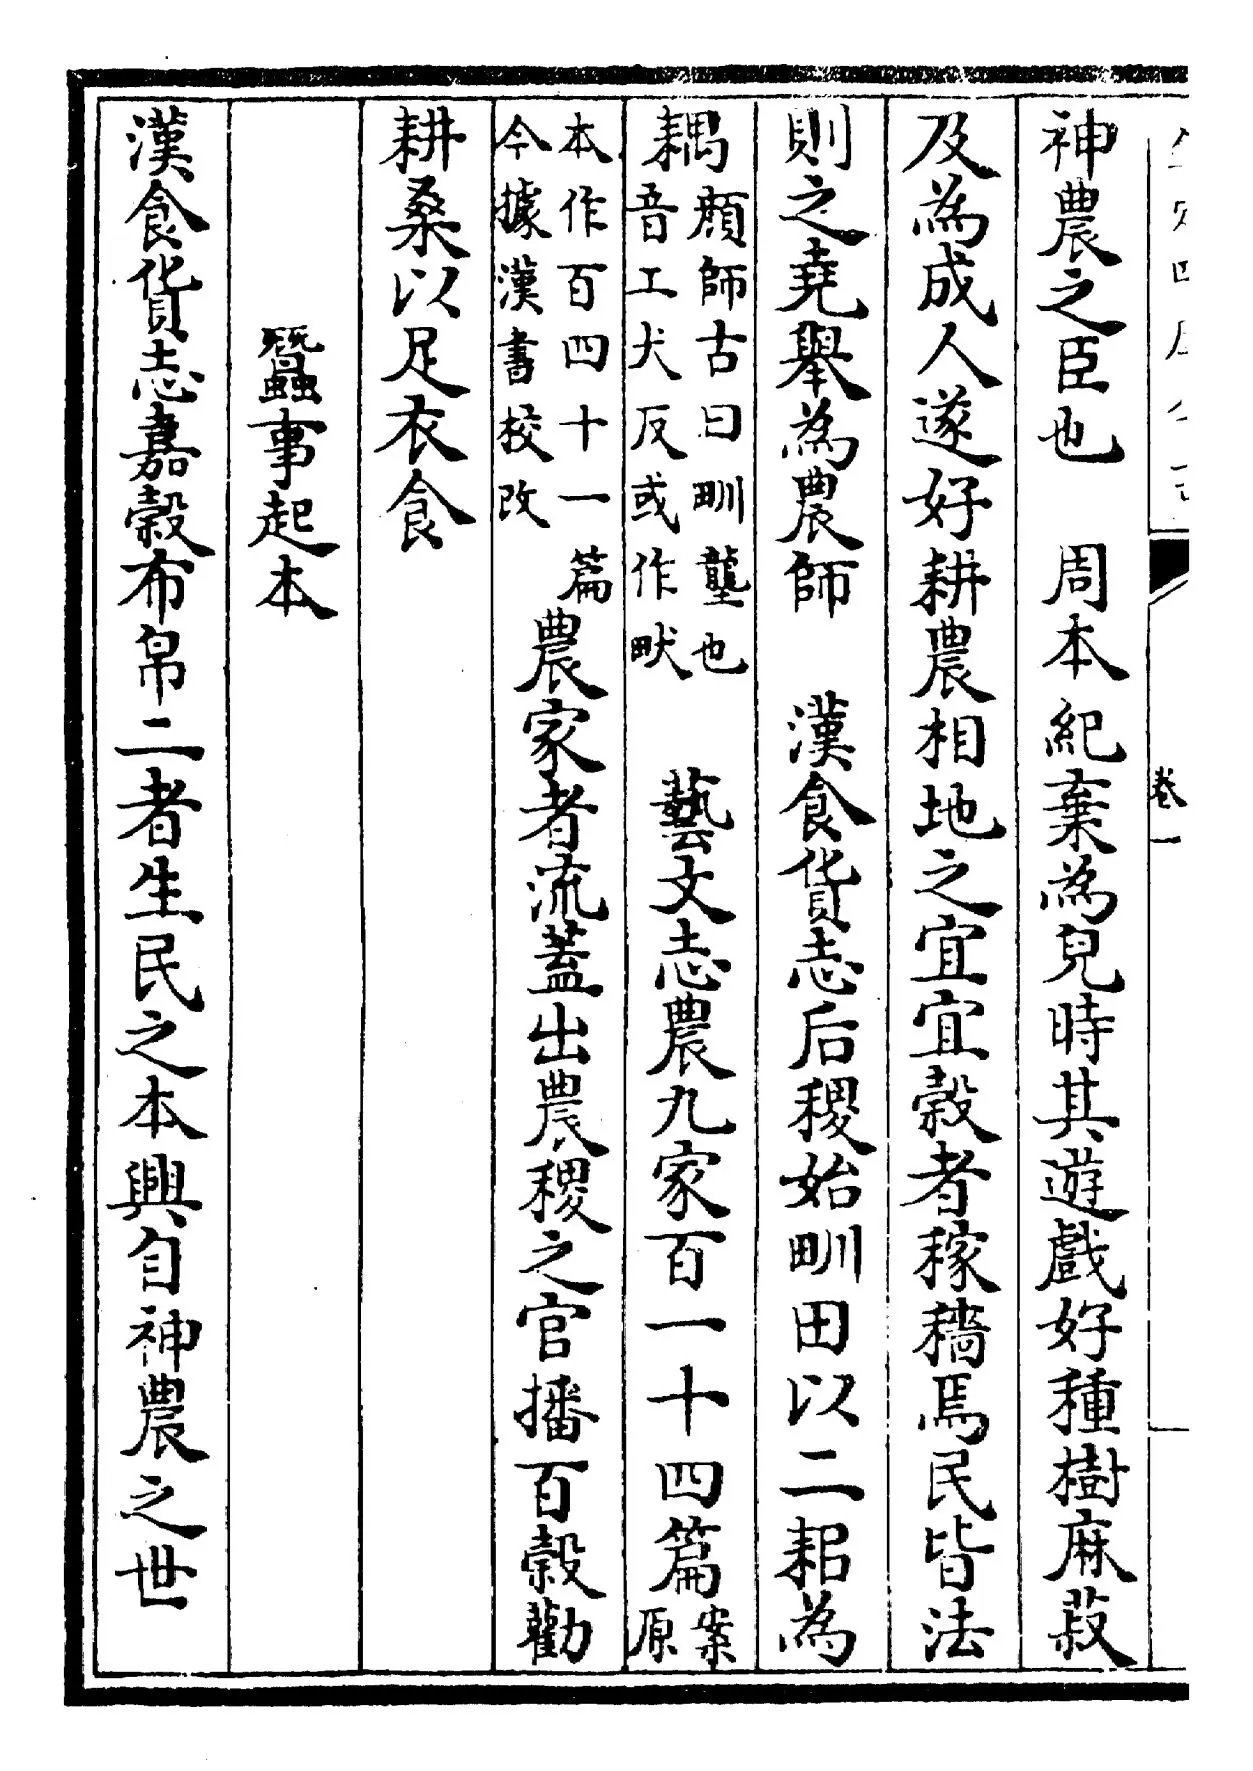 卷一
神農之臣也　周本紀棄為兒時其遊戲好種樹麻菽
及為成人遂好耕農相地之宜宜穀者稼穡焉民皆法
則之堯舉為農師　漢食貨志后稷始甽田以二耜為
耦顏師古曰甽壟也音工犬反或作畎　藝文志農九家百一十四篇案原
本作百四十一篇今據漢書校改農家者流蓋出農稷之官播百穀勸
耕桑以足衣食
蠶事起本
漢食貨志嘉穀布帛二者生民之本興自神農之世